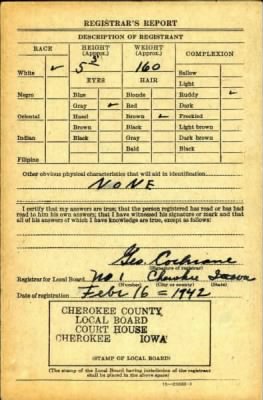 REGISTRAR'S REPORT
DESCRIPTION OF REGISTRANT
RACE HEIGHT (Approx.) WEIGHT (Approx.) COMPLEXION
White ✓ 5 160 Sallow
EYES HAIR Light
Negro Blue Blonde Ruddy ✓
Gray ✓ Red Dark
Oriental Hazel Brown ✓ Freckled
Brown Black Light brown
Indian Black Gray Dark brown
Bald Black
Filipino
Other obvious physical characteristics that will aid in identification
NONE
I certify that my answers are true; that the person registered has read or has had
read to him his own answers; that I have witnessed his signature or mark and that
all of his answers of which I have knowledge are true, except as follows:
Geo. Cochrane
(Signature of registrar)
Registrar for Local Board No 1 Cherokee Iowa
(Number) (City or county) (State)
Date of registration Feb. 16 = 1942
CHEROKEE COUNTY
LOCAL BOARD
COURT HOUSE
CHEROKEE IOWA
(STAMP OF LOCAL BOARD)
(The stamp of the Local Board having jurisdiction of the registrant
shall be placed in the above space)